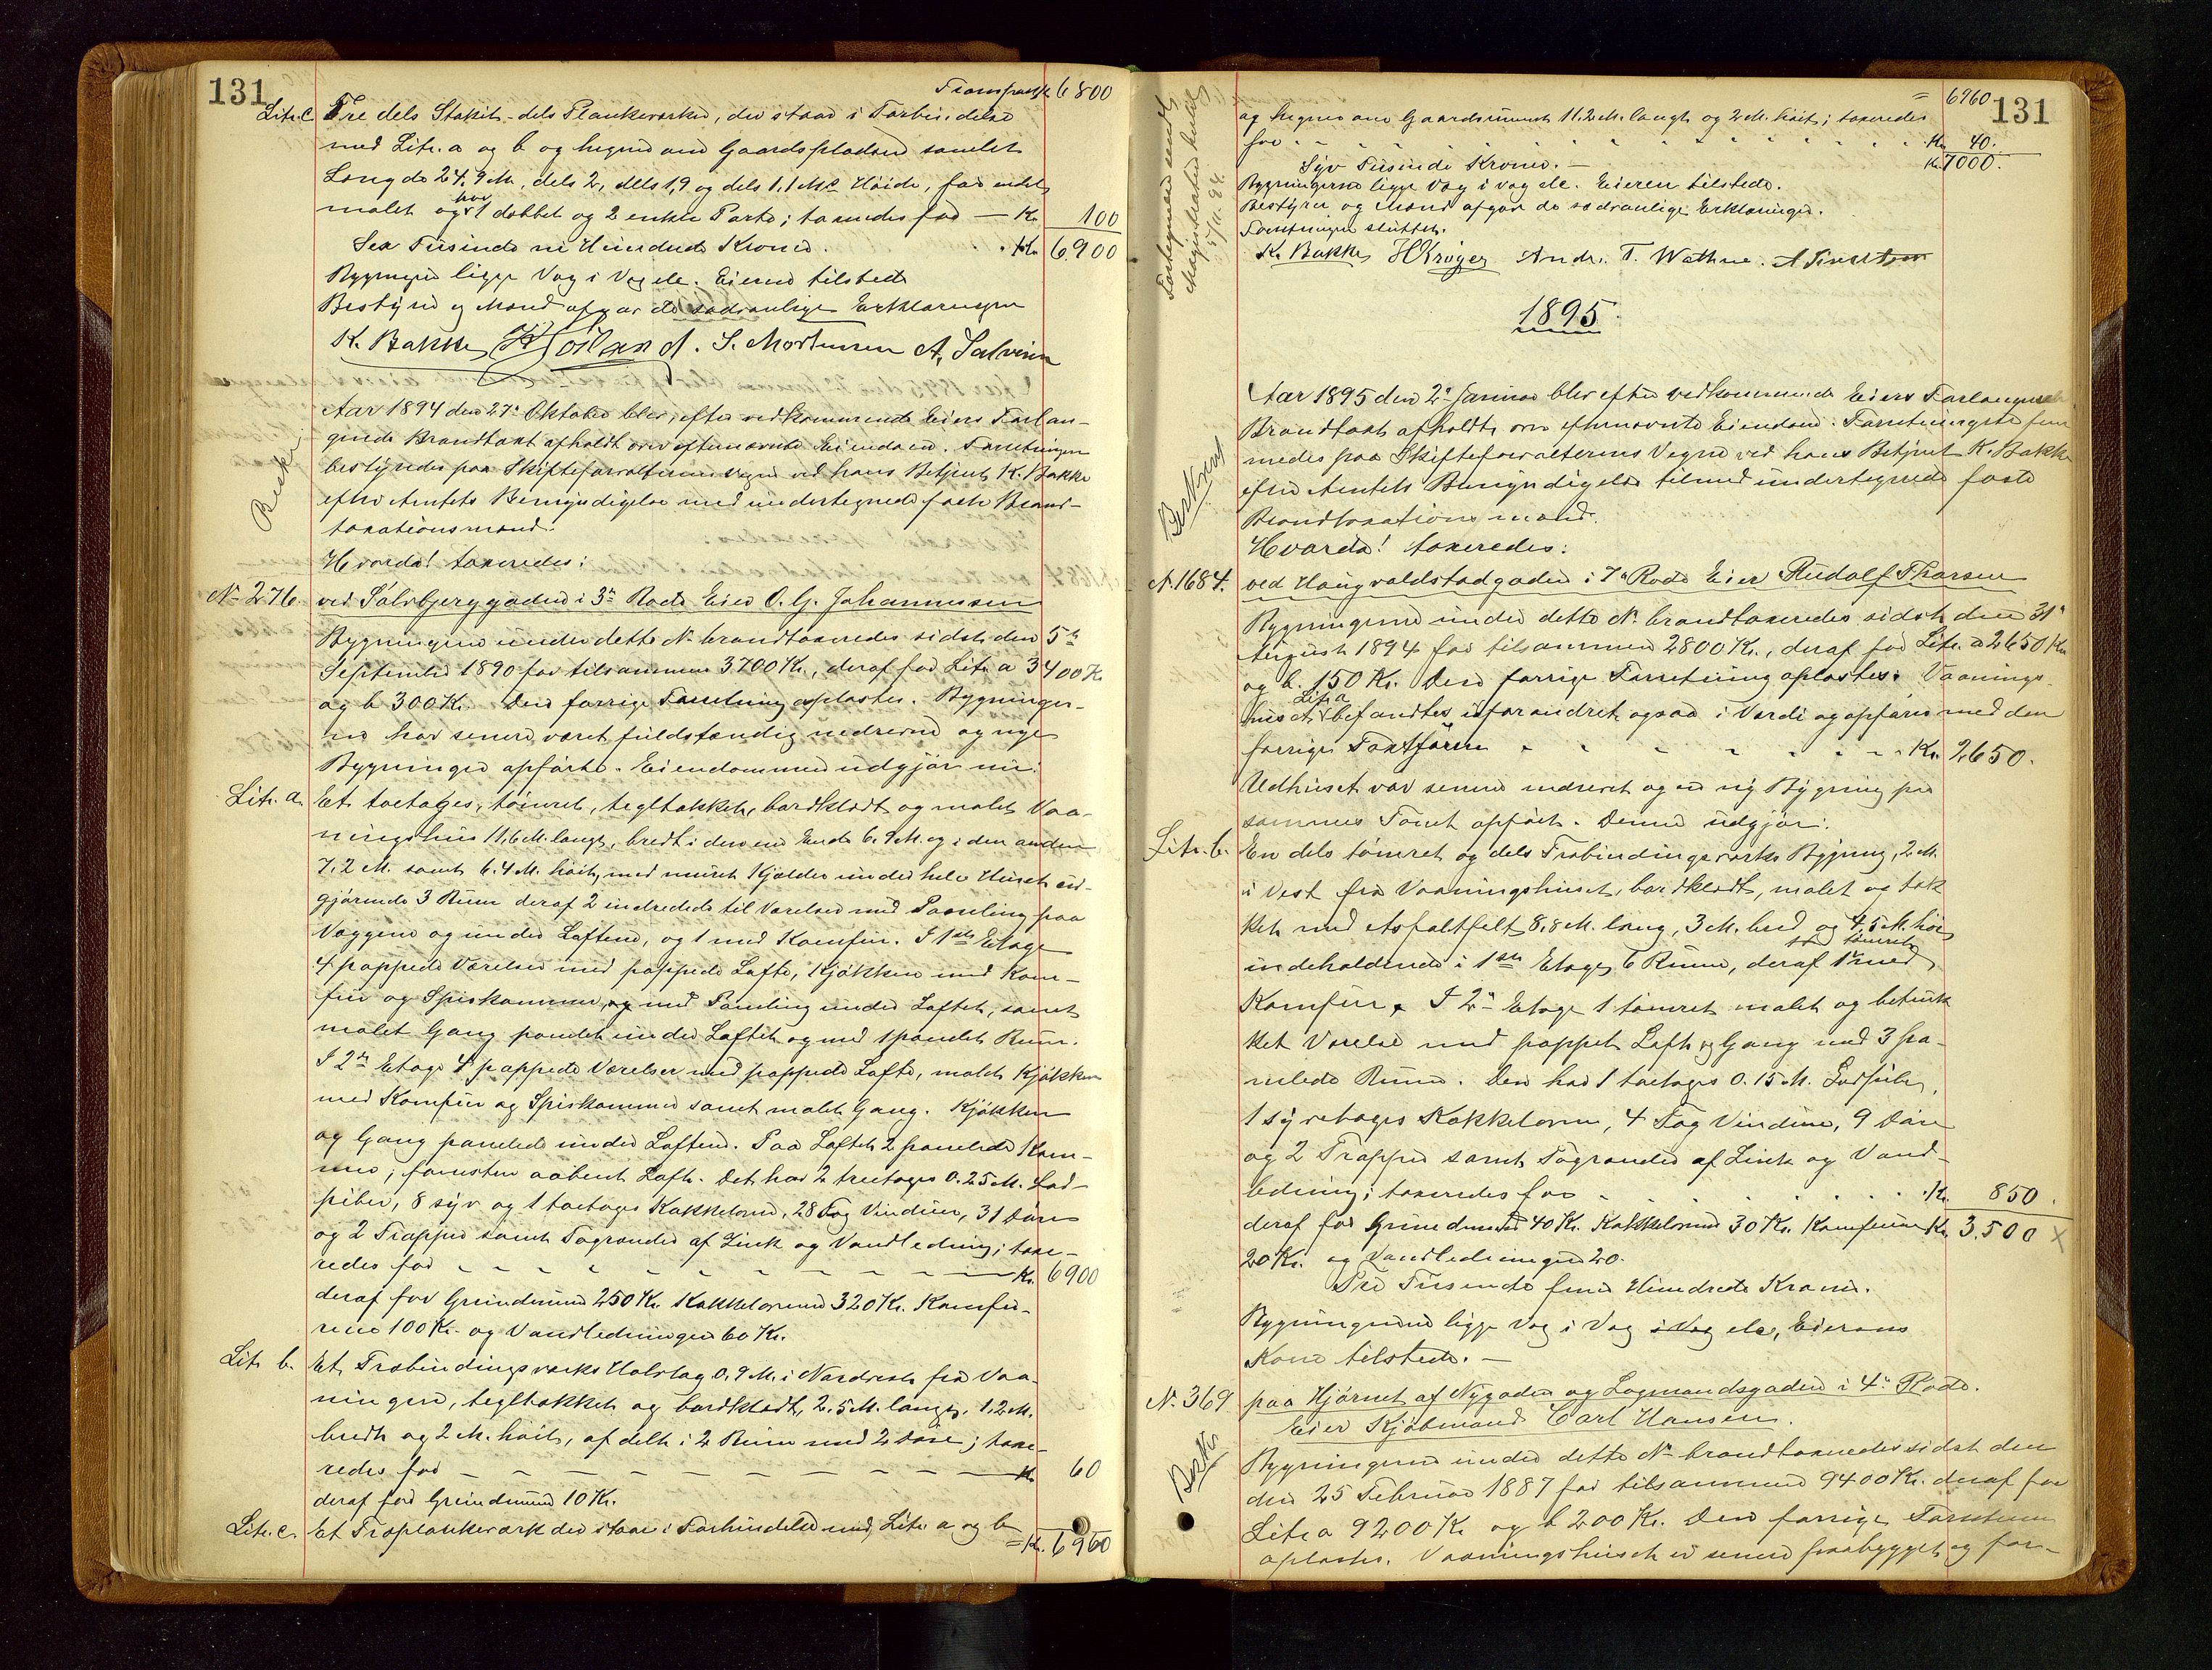 131
Transport Kr. 6800
Litr. c. Tre dels Stakit- dels Plankeværker, der staar i Forbindelse
med Litr. a og b og hegner om Gaardspladsen samlet
Længde 24,9 M., dels 2, dels 1,9 og dels 1,1 M. Høide, for endel
malet og har 1 dobbelt og 2 enkle Porte; taxeredes for — Kr. 100
Sex Tusinde ni Hundrede Kroner. Kr. 6900
Bygningerne ligge Væg i Væg etc. Eieren tilstede
Bestyrer og Mænd afgav de sædvanlige Erklæringer
K. Bakke S. Mortensen A. Salvesen
Aar 1894 den 27de Oktober blev, efter vedkommende Eiers Forlan-
gende Brandtaxt afholdt over efternævnte Eiendom. Forretningen
bestyredes paa Skifteforvalterens Vegne ved hans Betjent K. Bakke
efter Amtets Bemyndigelse med undertegnede faste Brand-
taxationsmænd.
Hvorda! taxeredes:
No 276. ved Sølvbjerggaden i 3die Rode Eier O. G. Johannessen
Bygningerne under dette No brandtaxeredes sidst den 5te
September 1890 for tilsammen 3700 Kr., deraf for Litr. a 3400 Kr
og b 300 Kr. Den forrige Forretning oplæstes. Bygninger-
ne har senere været fuldstændig nedrevne og nye
Bygninger opførte. Eiendommen udgjør nu:
Litr. a. Et toetages, tømret, tegltækket, bordklædt og malet Vaa-
ningshus 11,6 M. langt, bredt i den ene Ende 6.9 M. og i den anden
7,2 M. samt 6.4 M. høit, med muret Kjælder under hele Huset ud-
gjørende 3 Rum deraf 2 indredede til Værelser med Paneling paa
Væggene og under Loftene, og 1 med Komfur. I 1ste Etage
4 pappede Værelser med pappede Lofte, Kjøkken med Kom-
fur og Spiskammer, og med Paneling under Loftet, samt
malet Gang panelet under Loftet og med 1 panelet Rum.
I 2den Etage 4 pappede Værelser med pappede Lofte, malet Kjøkken
med Komfur og Spiskammer samt malet Gang. Kjøkken
og Gang panelede under Loftene. Paa Loftet 2 panelede Kam-
mer; forresten aabent Loft. Det har 2 treetages 0.25 M. Lod-
piber, 8 syv og 1 toetages Kakkelovne, 28 Fag Vinduer, 31 Døre
og 2 Trapper samt Tagrender af Zink og Vandledning; taxe-
redes for Kr. 6900
deraf for Grundmuren 250 Kr. Kakkelovnene 320 Kr. Komfu-
rene 100 Kr. og Vandledningen 60 Kr.
Litr. b. Et Træbindingsværks Halvtag 0,9 M. i Nordvest fra Vaa-
ningen, tegltækket og bordklædt, 2.5 M. langt, 1,2 M.
bredt og 2 M. høit, afdelt i 2 Rum med 2 Døre; taxe-
redes for Kr. 60
deraf for Grundmuren 10 Kr.
Litr. c. Et Træplankeværk der staar i Forbindelse med Litr. a og b
= Kr. 6960
= 6960 131
og hegner om Gaardsrummet 11.2 M. langt og 2 M. høit; taxeredes
for Kr. 40.
Syv Tusinde Kroner. — Kr. 7000.
Bygningerne ligge Væg i Væg etc. Eieren tilstede.
Bestyrer og Mænd afgav de sædvanlige Erklæringer.
Forretningen sluttet.
K. Bakke H Krøger Andr. T. Wathne.
1895
Aar 1895 den 2den Januar blev efter vedkommende Eiers Forlangende
Brandtaxt afholdt over efternævnte Eiendom. Forretningerne frem
medes paa Skifteforvalterens Vegne ved hans Betjent K. Bakke
efter Amtets Bemyndigelse tilmed undertegnede faste
Brandtaxationsmænd.
Hvorda! taxeredes:
No. 1684. ved Haugvaldstadgaden i 7de Rode Eier Rudolf Thorsen
Bygningerne under dette No. brandtaxeredes sidst den 31te
August 1894 for tilsammen 2800 Kr., deraf for Litr. a 2650 Kr
og b. 150 Kr. Den forrige Forretning oplæstes. Vaanings-
huset Litr a befandtes uforandret ogsaa i Værdi og opføres med den
forrige Taxtsum Kr. 2650.
Udhuset var senere nedrevet og en ny Bygning paa
sammes Tomt opført. Denne udgjør:
Litr. b. En dels tømret og dels Træbindingsværks Bygning, 2 M.
i Vest fra Vaaningshuset, bordklædt, malet og tæk
ket med Asfaltfilt, 8,8 M. lang, 3 M. bred og 4,5 M. høi
indeholdende i 1ste Etage 6 Rum, deraf 1 tømret med
Komfur. I 2den Etage 1 tømret malet og betræk
ket Værelse med pappet Loft og Gang med 3 pa-
nelede Rum. Den har 1 toetages 0.15 M. Lodpibe,
1 syvetages Kakkelovn, 4 Fag Vinduer, 9 Døre
og 2 Trapper samt Tagrender af Zink og Vand-
ledning; taxeredes for Kr. 850.
deraf for Grundmuren 40 Kr. Kakkelovnen 30 Kr. Komfuren Kr. 3.500 x
20 Kr. og Vandledningen 20.
Tre Tusinde fem Hundrede Kroner.
Bygningerne ligge Væg i Væg i Væg etc, Eierens
Kone tilstede. —
No. 369 paa Hjørnet af Nygaden og Lagmandsgaden i 4de Rode.
Eier Kjøbmand Carl Hansen.
Bygningerne under dette No brandtaxeredes sidst den
den 25 Februar 1887 for tilsammen 9400 Kr. deraf for
Litr a 9200 Kr og b 200 Kr. Den forrige Forretning
oplæstes. Vaaningshuset er senere paabygget og for-